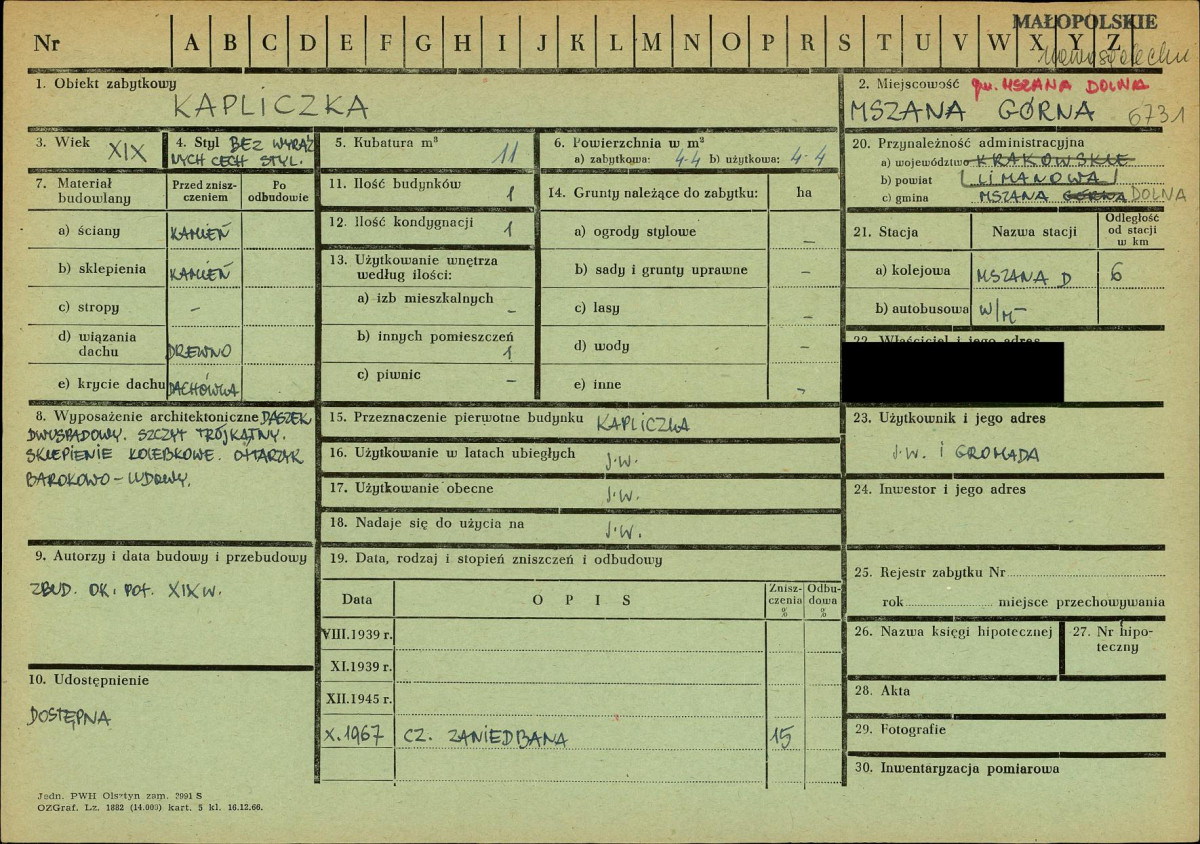 MAŁOPOLSKIE
Nr A B C D E F G H I J K L M N O P R S T U V W X Y Z
1. Obiekt zabytkowy
KAPLICZKA
2. Miejscowość gm. MSZANA DOLNA
MSZANA GÓRNA 6731
3. Wiek XIX
4. Styl BEZ WYRAŹ
NYCH CECH STYL.
5. Kubatura m³ 11
6. Powierzchnia w m²
a) zabytkowa: 4.4 b) użytkowa: 4.4
20. Przynależność administracyjna
a) województwo KRAKOWSKIE
b) powiat LIMANOWA
c) gmina MSZANA GÓRNA DOLNA
7. Materiał budowlany
Przed znisz-
czeniem
Po
odbudowie
a) ściany KAMIEŃ
b) sklepienia KAMIEŃ
c) stropy –
d) wiązania
dachu DREWNO
e) krycie dachu DACHÓWKA
11. Ilość budynków 1
12. Ilość kondygnacji 1
13. Użytkowanie wnętrza
według ilości:
a) izb mieszkalnych –
b) innych pomieszczeń 1
c) piwnic –
14. Grunty należące do zabytku: ha
a) ogrody stylowe –
b) sady i grunty uprawne –
c) lasy –
d) wody –
e) inne –
21. Stacja Nazwa stacji
Odległość
od stacji
w km
a) kolejowa MSZANA D 6
b) autobusowa W/M –
22. Właściciel i jego adres
8. Wyposażenie architektoniczne DASZEK
DWUSPADOWY. SZCZYT TRÓJKĄTNY.
SKLEPIENIE KOLEBKOWE. OŁTARZYK
BAROKOWO – LUDOWY.
15. Przeznaczenie pierwotne budynku KAPLICZKA
16. Użytkowanie w latach ubiegłych J.W.
17. Użytkowanie obecne J.W.
18. Nadaje się do użycia na J.W.
23. Użytkownik i jego adres
J.W. I GROMADA
24. Inwestor i jego adres
9. Autorzy i data budowy i przebudowy
ZBUD. OK. POŁ. XIX W.
19. Data, rodzaj i stopień zniszczeń i odbudowy
Data OPIS
Znisz-
czenia
%
Odbu-
dowa
%
VIII.1939 r.
XI.1939 r.
XII.1945 r.
X.1967 CZ. ZANIEDBANA 15
25. Rejestr zabytku Nr
rok miejsce przechowywania
26. Nazwa księgi hipotecznej
27. Nr hipo-
teczny
10. Udostępnienie
DOSTĘPNA
28. Akta
29. Fotografie
30. Inwentaryzacja pomiarowa
Jedn. PWH Olsztyn zam. 2991 S
OZGraf. Lz. 1882 (14.000) kart. 5 kl. 16.12.66.